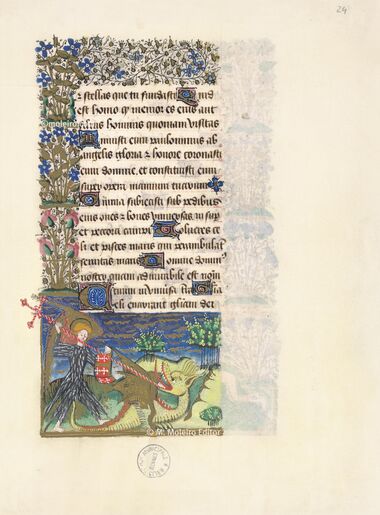 24
⁊ stellas que tu fundasti Quid
est homo q memor es eius aut
filius hominis quoniam visitas
Minuisti eum paulominus ab
angelis gloria ⁊ honore coronasti
eum domine, et constituisti eum
super opera manuum tuarum
Omnia subiecisti sub pedibus
eius oues ⁊ boues uniuersas insup
et pecora campi Volucres ce
li et pisces maris qui perambulāt
semitas maris Domine dominꝰ
noster quam admirabile est nom
Celi enarrant gliam dei
©moleiro
© M. Moleiro Editor